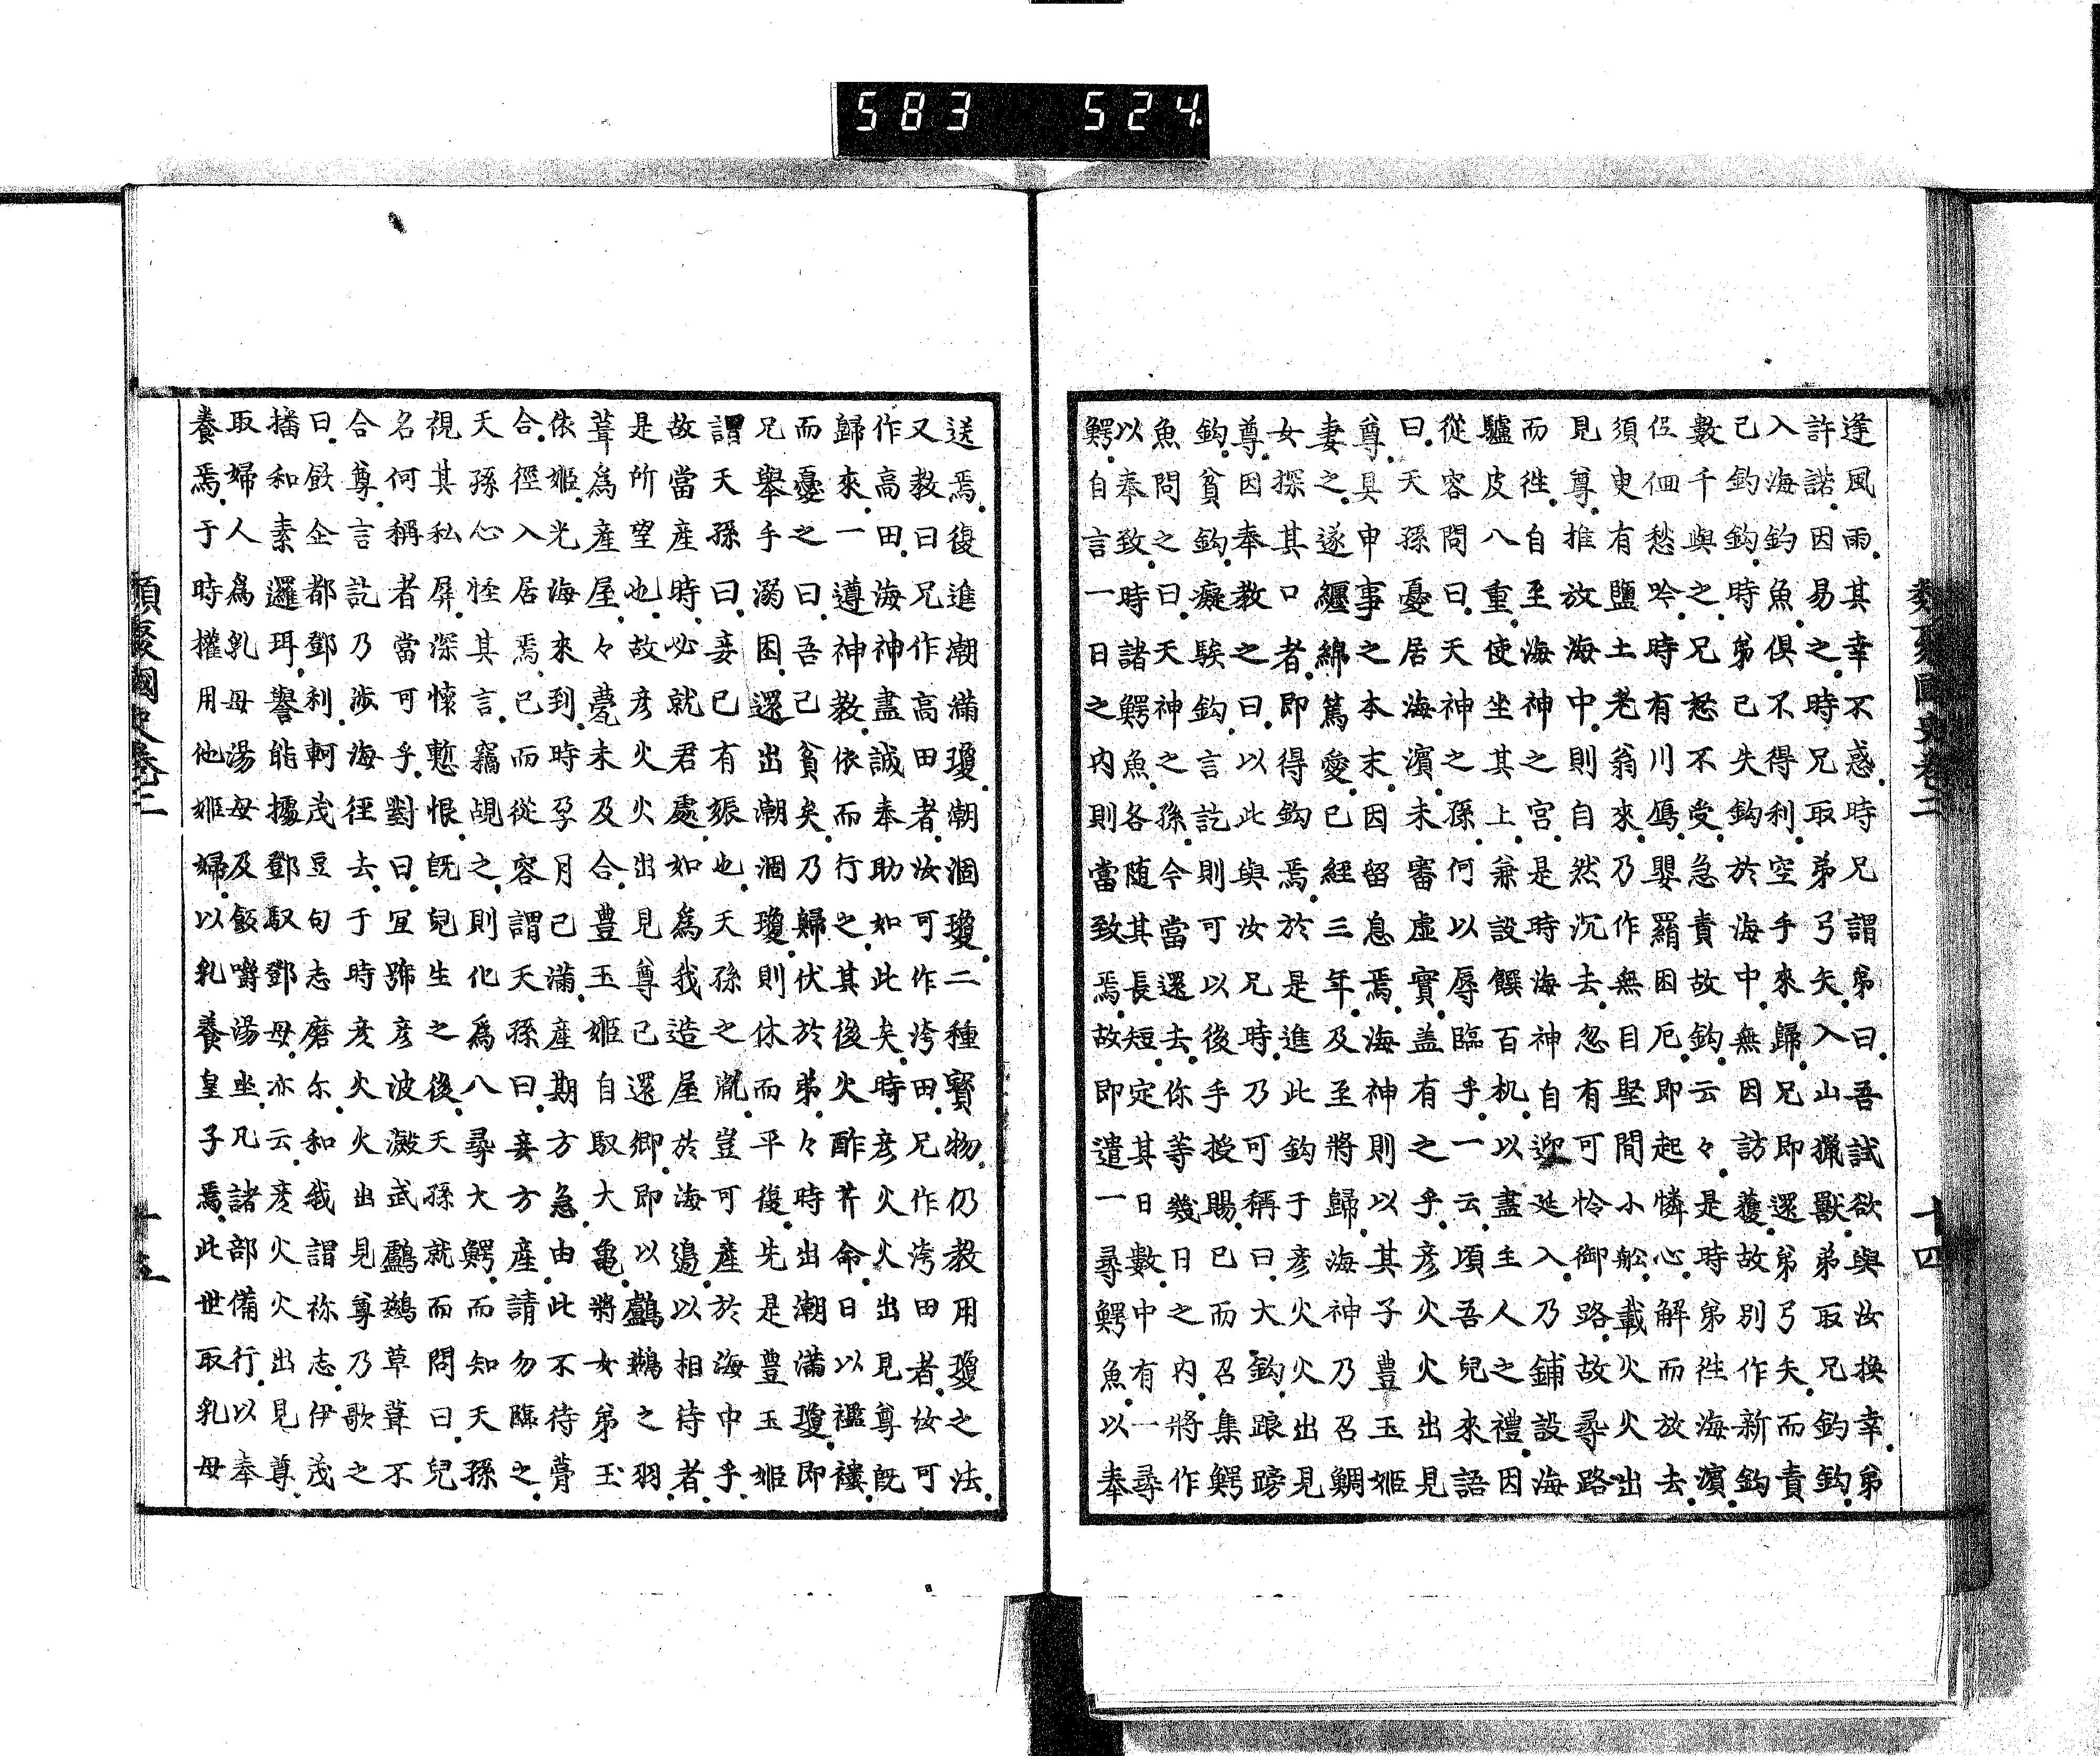 583 524
類聚國史卷三 十四
逢風雨其幸不惑時兄謂弟曰吾試欲與汝換幸弟
許諾因易之時兄取弟弓矢入山獵獸弟取兄鈎鈎
入海釣魚俱不得利空手來歸兄即還弟弓矢而責
已鈎鈎時弟已失鈎於海中無因訪獲故別作新鈎
數千與之兄怒不受急責故鈎云々是時弟徃海濱
伍佪愁吟時有川鴈嬰羂困厄即起憐心解而放去
須臾有鹽土老翁來乃作無目堅間小舩載火火出
見尊推放海中則自然沉去忽有可怜御路故尋路
而徃自至海神之宮是時海神自迎延入乃鋪設海
驢皮八重使坐其上兼設饌百机以盡主人之禮因
從容問曰天神之孫何以辱臨乎一云頃吾兒來語
曰天孫憂居海濱未審虛實盖有之乎彦火火出見
尊具申事之本末因留息焉海神則以其子豊玉姬
妻之遂纒綿篤愛已經三年及至將歸海神乃召鯛
女探其口者即得鈎焉於是進此鈎于彦火火出見
尊因奉教之曰以此與汝兄時乃可稱曰大鈎踉蹡
鈎貧鈎癡騃鈎言訖則可以後手授賜已而召集鰐
魚問之曰天神之孫今當還去你等幾日之內將作
以奉致時諸鰐魚各随其長短定其日數中有一尋
鰐自言一日之內則當致焉故即遣一尋鰐魚以奉
送焉復進潮滿瓊潮涸瓊二種寳物仍教用瓊之法
又教曰兄作高田者汝可作洿田兄作洿田者汝可
作高田海神盡誠奉助如此矣時彦火火出見尊既
歸來一遵神教依而行之其後火酢芹命日以襤褸
而憂之曰吾已貧矣乃歸伏於弟々時出潮滿瓊即
兄舉手溺困還出潮涸瓊則休而平復先是豊玉姬
謂天孫曰妾已有娠也天孫之胤豈可產於海中乎
故當產時必就君處如爲我造屋於海邉以相待者
是所望也故彦火火出見尊已還鄉即以鸕鷀之羽
葺爲產屋々甍未及合豊玉姬自馭大亀將女弟玉
依姬光海來到時孕月已滿產期方急由此不待葺
合徑入居焉已而從容謂天孫曰妾方產請勿臨之
天孫心怪其言竊覘之則化爲八尋大鰐而知天孫
視其私屏深懷慙恨既兒生之後天孫就而問曰兒
名何稱者當可乎對曰宜號彦波瀲武鸕鷀草葺不
合尊言訖乃渉海徑去于時彦火火出見尊乃歌之
曰飫企都鄧利軻茂豆句志磨尓和我謂祢志伊茂
播和素邏珥譽能據鄧馭鄧母亦云彦火火出見尊
取婦人爲乳母湯母及飯嚼湯坐凡諸部備行以奉
養焉于時權用他姬婦以乳養皇子焉此世取乳母
類聚國史卷三 十五